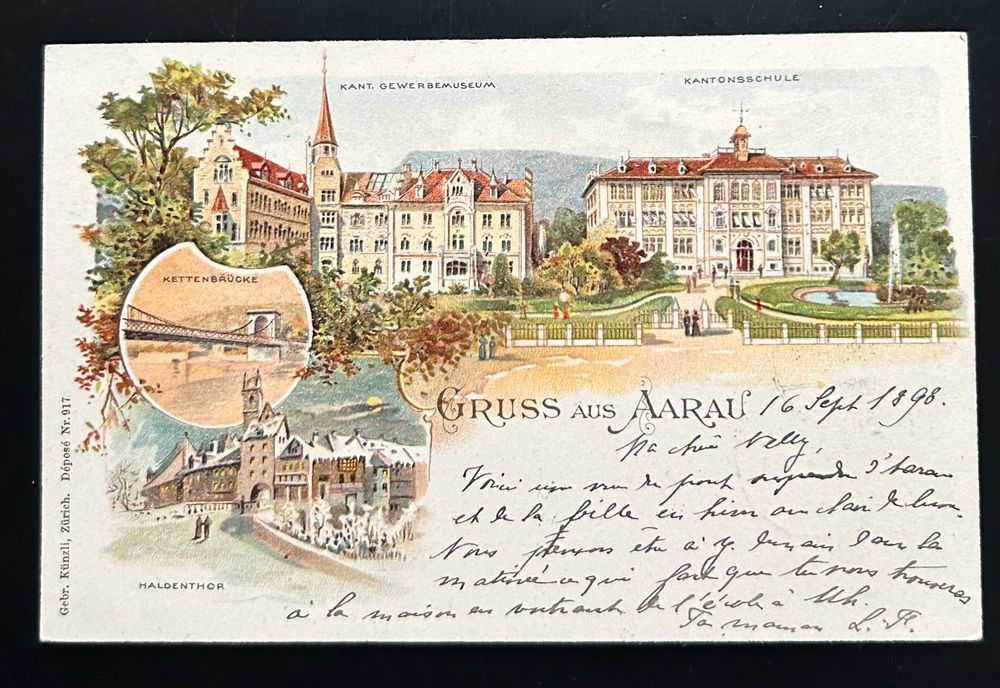 KANT. GEWERBEMUSEUM
KANTONSSCHULE
KETTENBRÜCKE
HALDENTHOR
Gebr. Künzli, Zürich. Déposé Nr. 917
GRUSS AUS AARAU 16 Sept 1898.
Ma chère Nelly,
Voici une vue du pont d'Aarau
et de la ville en hiver au clair de lune.
Nous pensons être à demain dans la
matinée ce qui fait que tu nous trouveras
à la maison en rentrant de l'école à
Ta maman L. F.